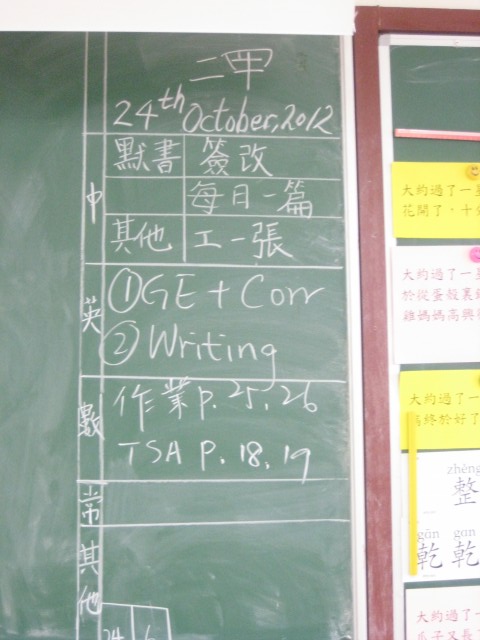 二甲
24th October, 2012
中 默書 簽改
每月一篇
其他 工一張
英 ①GE + Corr
②Writing
數 作業 p. 25, 26
TSA P. 18, 19
常
其他
24 6
大約過了一
花開了，十
大約過了一
於從蛋殼裏
雞媽媽高興
大約過了一
終於好了
zhěng
整
gān gān
乾 乾
大約過了一
爪子又長